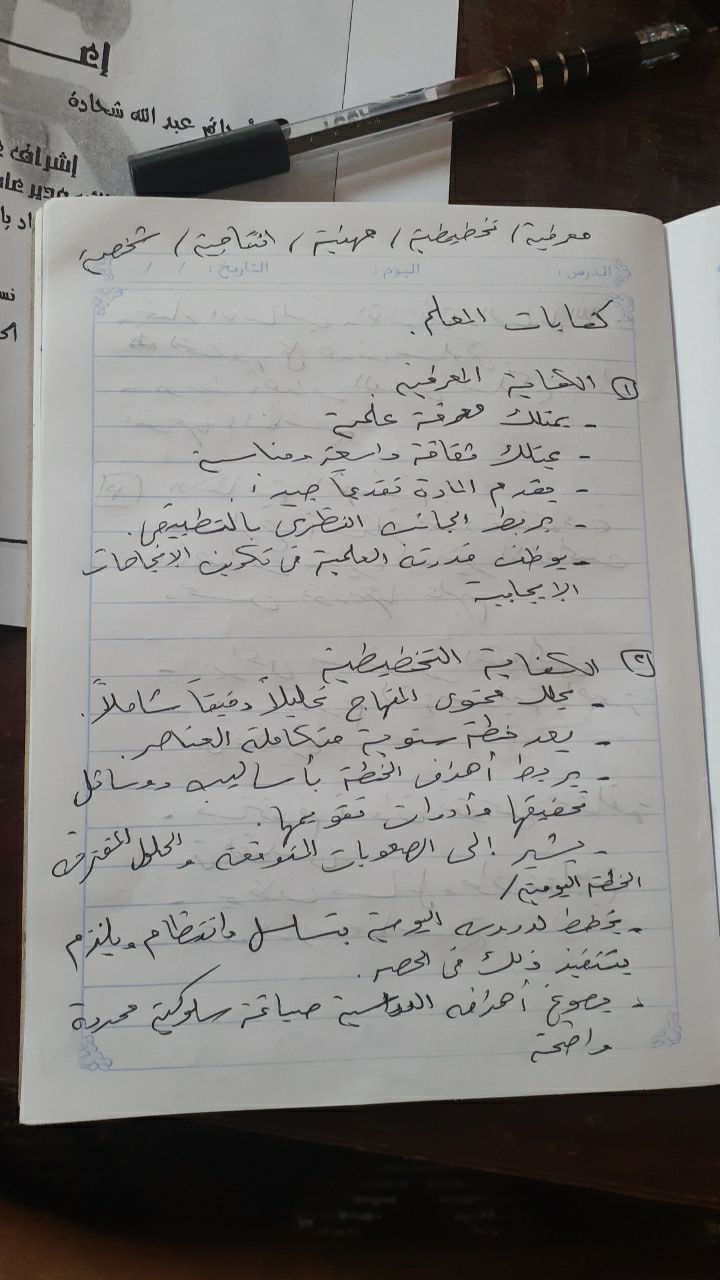 إدا
عبد الله شحادة
إشراف
مدير عام
معرفية / تخطيطية / مهنية / انتاجية / شخصية
الدرس : اليوم : التاريخ : / /
كفايات المعلم .
١ الكفاية المعرفية
- يمتلك معرفة علمية
- يمتلك ثقافة واسعة ومناسبة
- يقدم المادة تقديماً جيداً
- يربط الجانب النظري بالتطبيقي .
- يوظف قدرته العلمية في تكوين الاتجاهات
الايجابية
٢ الكفاية التخطيطية
- يحلل محتوى المنهاج تحليلاً دقيقاً شاملاً .
- يعد خطة سنوية متكاملة العناصر .
- يربط أهداف الخطة بأساليب ووسائل
تحقيقها وأدوات تقويمها .
- يشير إلى الصعوبات المتوقعة والحلول المقترحة
الخطة اليومية /
- يخطط لدروسه اليومية بتسلسل وانتظام ويلتزم
بتنفيذ ذلك في الحصر .
- يصوغ أهدافه الدراسية صياغة سلوكية محددة
واضحة